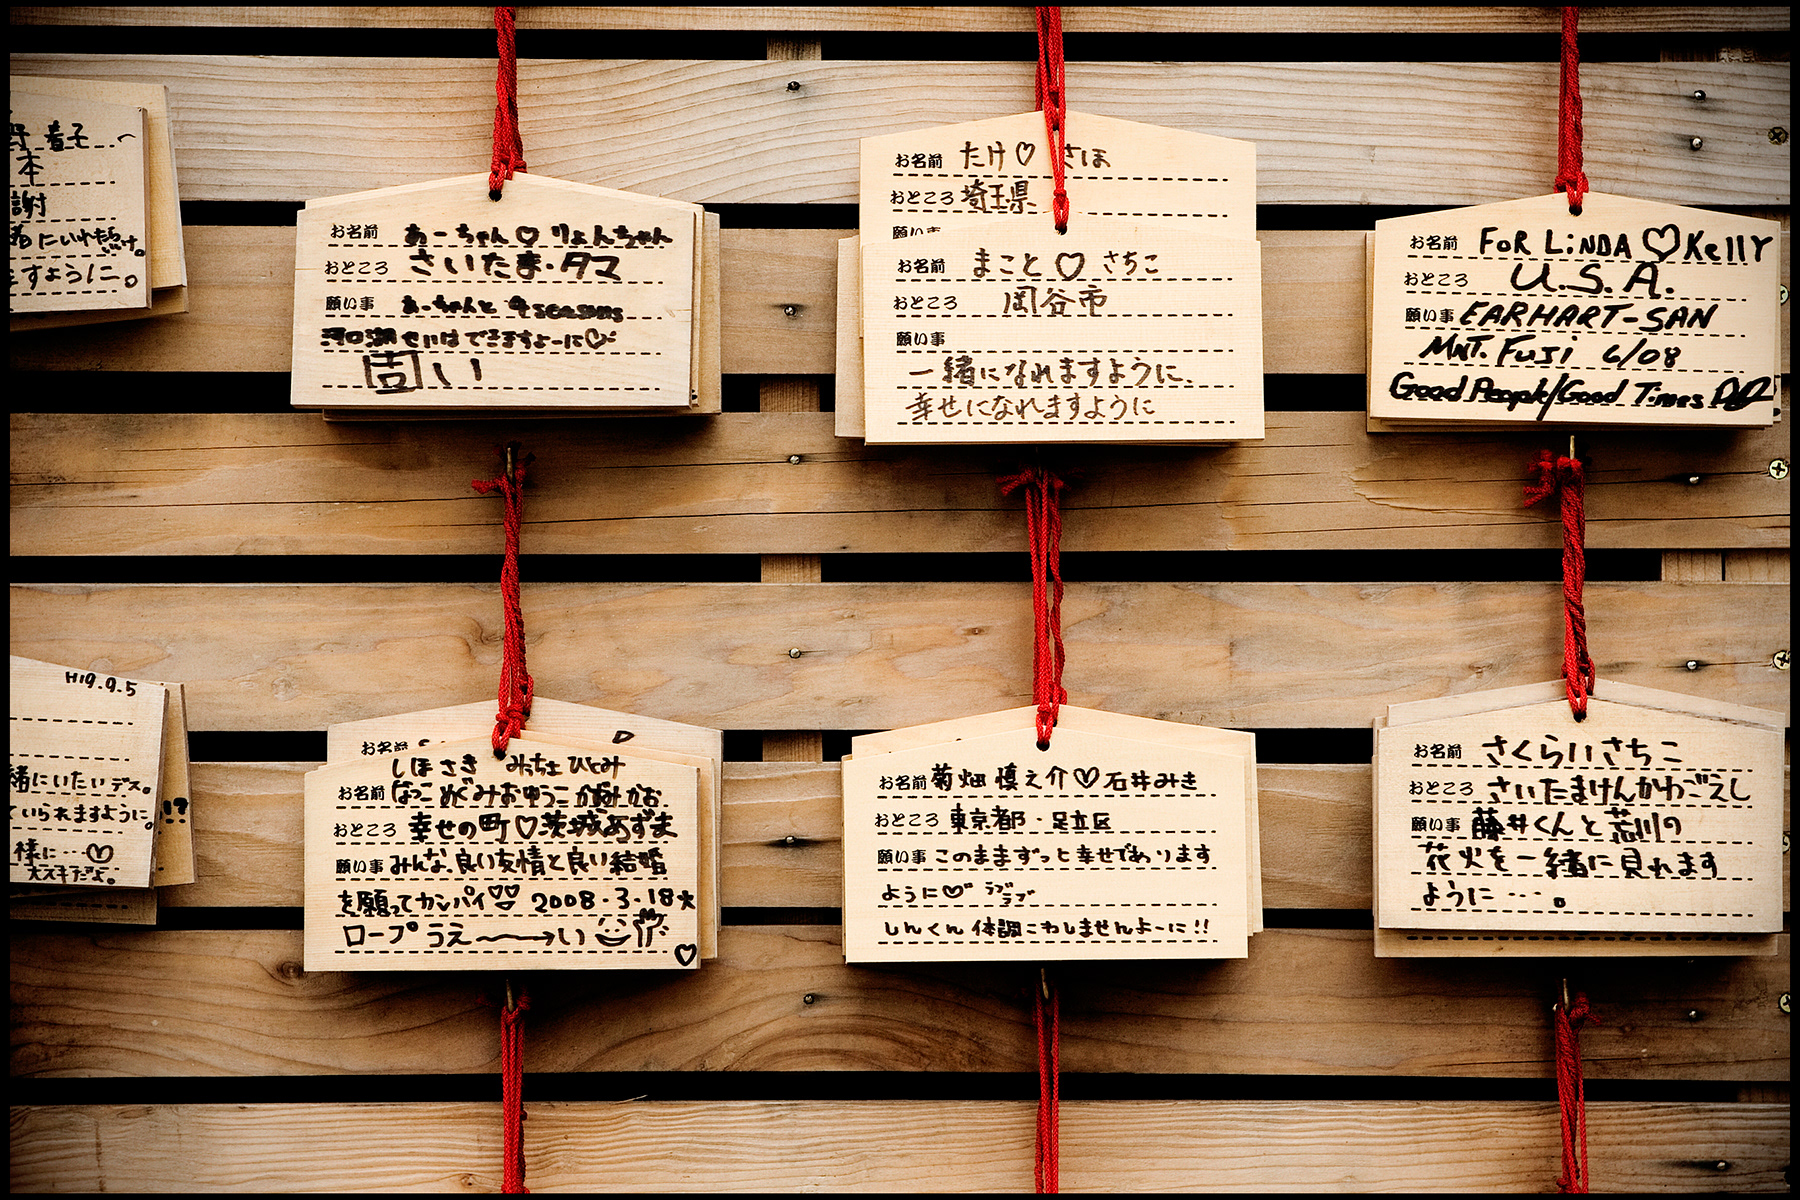 着子
本
謝
にいれたら
ますように。
お名前 あーちゃん♡りょんちゃん
おところ さいたま・タマ
願い事 あーちゃんと 4seasons
河口湖 せいはできますよーに♡
い
お名前 たけ♡さほ
おところ 埼玉県
願い事
お名前 まこと♡さちこ
おところ 岡谷市
願い事
一緒になれますように、
幸せになれますように
お名前 FOR LiNDA ♡ Kelly
おところ U.S.A.
願い事 EARHART-SAN
MNT. FUJI 6/08
Good People/Good Times
H19.9.5
緒にいたいデス。
ていられますように。
!?
様に…♡
大スキだよ。
お名前
しほ さき みっちょ ひとみ
お名前 なっこ めぐみ おゆうこ かおり
おところ 幸せの町♡茨城あずま
願い事 みんな、良い友情と良い結婚
を願ってカンパイ♡♡ 2008.3.18火
ロープうえ〜〜→い
お名前 菊畑 慎之介♡石井みき
おところ 東京都・足立区
願い事 このままずっと幸せであります
ように♡ ラブラブ
しんくん 体調こわしませんよーに!!
お名前 さくらいさちこ
おところ さいたまけんかわごえし
願い事 藤井くんと荒川の
花火を一緒に見れます
ように…。